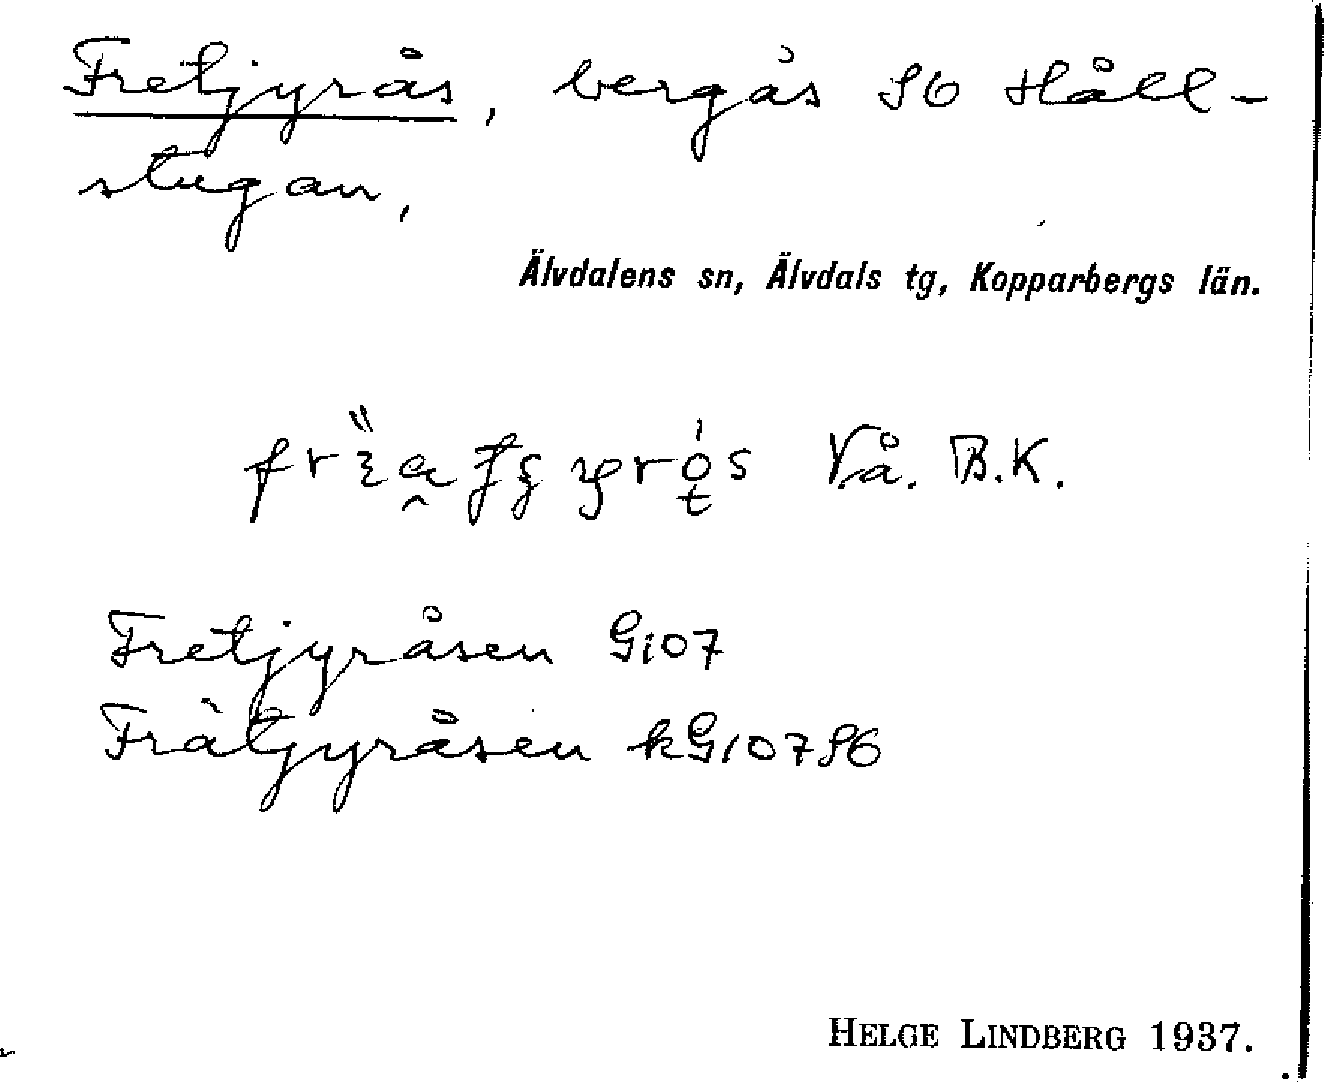 Fretjyrås, bergås SO Håll-
stugan,
Älvdalens sn, Älvdals tg, Kopparbergs län.
Vå. B.K.
Fretjyråsen Gi07
Frätjyråsen
HELGE LINDBERG 1937.